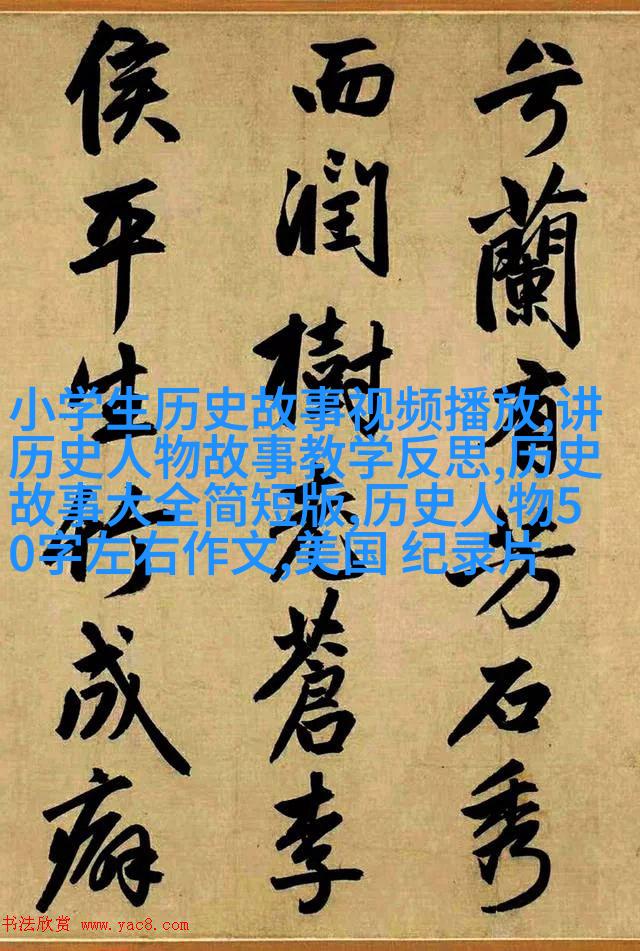 兮蘭有芳石秀
而潤樹老蒼李
侯平生竹成癖
小学生历史故事视频播放,讲
历史人物故事教学反思,历史
故事大全简短版,历史人物5
0字左右作文,美国 纪录片
书法欣赏 www.yac8.com